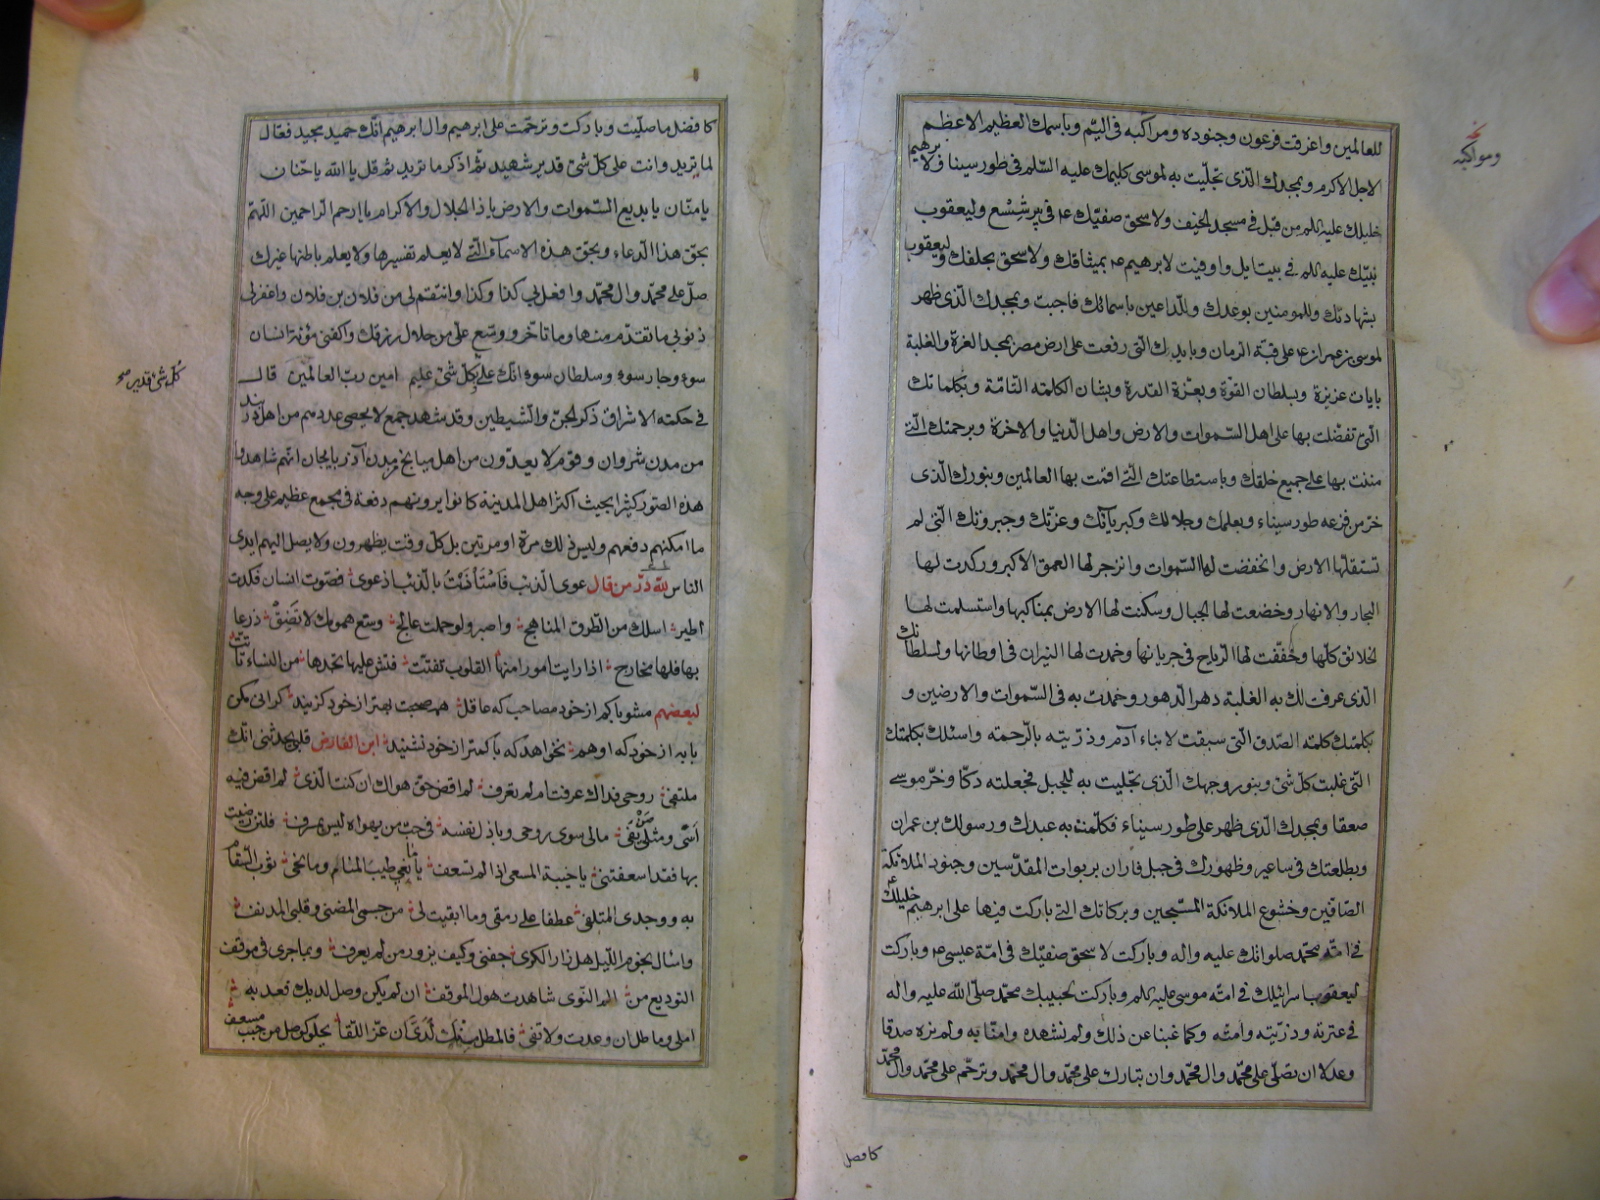 للعالمين واغرقت فرعون وجنوده ومراكبه فى اليم وباسمك العظيم الاعظم
الاجل الاكرم وبمجدك الذى تجليت به لموسى كليمك عليه السلم فى طور سينا ولابرهيم
خليلك عليه من قبل فى مسجد الخيف ولاسحق صفيك ع م فى بئر شيع وليعقوب
نبيك عليه فى بيت ايل واوفيت لابرهيم ع م بميثاقك ولاسحق بحلفك وليعقوب
بشهادتك وللمومنين بوعدك وللداعين باسمائك فاجبت وبمجدك الذى ظهر
لموسى بن عمران ع م على قبة الزمان وبايدك التى رفعت على ارض مصر بمجد العزة والغلبة
بايات عزيزة وبسلطان القوة وبعزة القدرة وبشان الكلمته التامة وبكلماتك
التى تفضلت بها على اهل السموات والارض واهل الدنيا والاخرة وبرحمتك التى
مننت بها على جميع خلقك وباستطاعتك التى اقمت بها العالمين وبنورك الذى
خر من فزعه طور سيناء وبعلمك وجلالك وكبريآئك وعزتك وجبروتك التى لم
تستقلها الارض وانخفضت لها السموات وانزجر لها العمق الاكبر وركدت لها
البحار والانهار وخضعت لها الجبال وسكنت لها الارض بمناكبها واستسلمت لها
الخلائق كلها وخفقت لها الرياح فى جريانها وخمدت لها النيران فى اوطانها وبسلطانك
الذى عرفت لك به الغلبة دهر الدهور وحمدت به فى السموات والارضين و
بكلمتك كلمته الصدق التى سبقت لابناء آدم وذريته بالرحمته واسئلك بكلمتك
التى غلبت كل شئ وبنور وجهك الذى تجليت به للجبل فجعلته دكا وخر موسى
صعقا وبمجدك الذى ظهر على طور سيناء فكلمت به عبدك ورسولك بن عمران
وبطلعتك فى ساعير وظهورك فى جبل فاران بربوات المقدسين وجنود الملائكة
الصافين وخشوع الملائكة المسبحين وبركاتك التى باركت فيها على ابرهيم خليلك ع
فى امة محمد صلواتك عليه واله وباركت لاسحق صفيك فى امة عيسى ع م وباركت
ليعقوب اسرائيلك فى امته موسى عليه وباركت لحبيبك محمد صلى الله عليه واله
فى عترته وذريته وامته وكما غبنا عن ذلك ولم نشهده وامنا به ولم نره صدقا
وعدلا ان تصلى على محمد وال محمد وان تبارك على محمد وال محمد وترحم على محمد وال محمد
ومواكبه
كافضل
كافضل ما صليت وباركت وترحمت على ابرهيم وال ابرهيم انك حميد مجيد فعال
لما تريد وانت على كل شئ قدير شهيد ثم اذكر ما تريد ثم قل يا الله يا حنان
يا منان يا بديع السموات والارض يا ذا الجلال والاكرام يا ارحم الراحمين اللهم
بحق هذا الدعاء وبحق هذه الاسمآء التى لا يعلم تفسيرها ولا يعلم باطنها غيرك
صل على محمد وال محمد وافعل بى كذا وكذا وانتقم لى من فلان بن فلان واغفر لى
ذنوبى ما تقدم منها وما تأخر ووسع على من حلال رزقك واكفنى مؤنة انسان
سوء وجار سوء وسلطان سوء انك على كل شئ عليم امين رب العالمين قال
كل شئ قدير صح
فى حكمته الاشراق ذكر الجن والشيطين وقد شهد جمع لا يحصى عددهم من اهل دربند
من مدن شروان وقوم لا يعدون من اهل ميانج من مدن آذربايجان انهم شاهدوا
هذه الصور كثيرا بحيث اكثر اهل المدينة كانوا يرونهم دفعة فى مجمع عظيم على وجه
ما امكنهم دفعهم وليس ذلك مرة او مرتين بل كل وقت يظهرون ولا يصل اليهم ايدى
الناس لله در من قال عوى الذئب فاستأنست بالذئب اذ عوى فصوت انسان فكدت
اطير اسلك من الطرق المناهج واصبر ولو حملت عالج وسع همومك لا تضق ذرعا
بها فلها مخارج اذا رايت امورا منها القلوب تفتت فتش عليها تجدها من النساء تأتت
لبعضهم مشو با كم از خود مصاحب كه عاقل همه صحبت بهتر از خود گزيند گرانى مكن
با به از خود كه او هم نخواهد كه با كمتر از خود نشيند ابن الفارض قلبى يحدثنى انك
متلفى روحى فداك عرفت ام لم تعرف لم اقض حق هواك ان كنت الذى لم اقض فيه
اسى ومثلى من يفى مالى سوى روحى وباذل نفسه فى حب من يهواه ليس بمسرف فلئن رضيت
بها فقد اسعفتنى يا خيبة المسعى اذا لم تسعف يا مانعى طيب المنام ومانحى ثوب السقام
به ووجدى المتلفى عطفا على رمقى وما ابقيت لى من جسمى المضنى وقلبى المدنف
واسال نجوم الليل هل زار الكرى جفنى وكيف يزور من لم يعرف وبما جرى فى موقف
التوديع من الم النوى شاهدت هول الموقف ان لم يكن وصل لديك فعد به
املى وماطل ان وعدت ولا تفى فالمطل منك لدى ان عز اللقا يحلو كوصل من حبيب مسعف